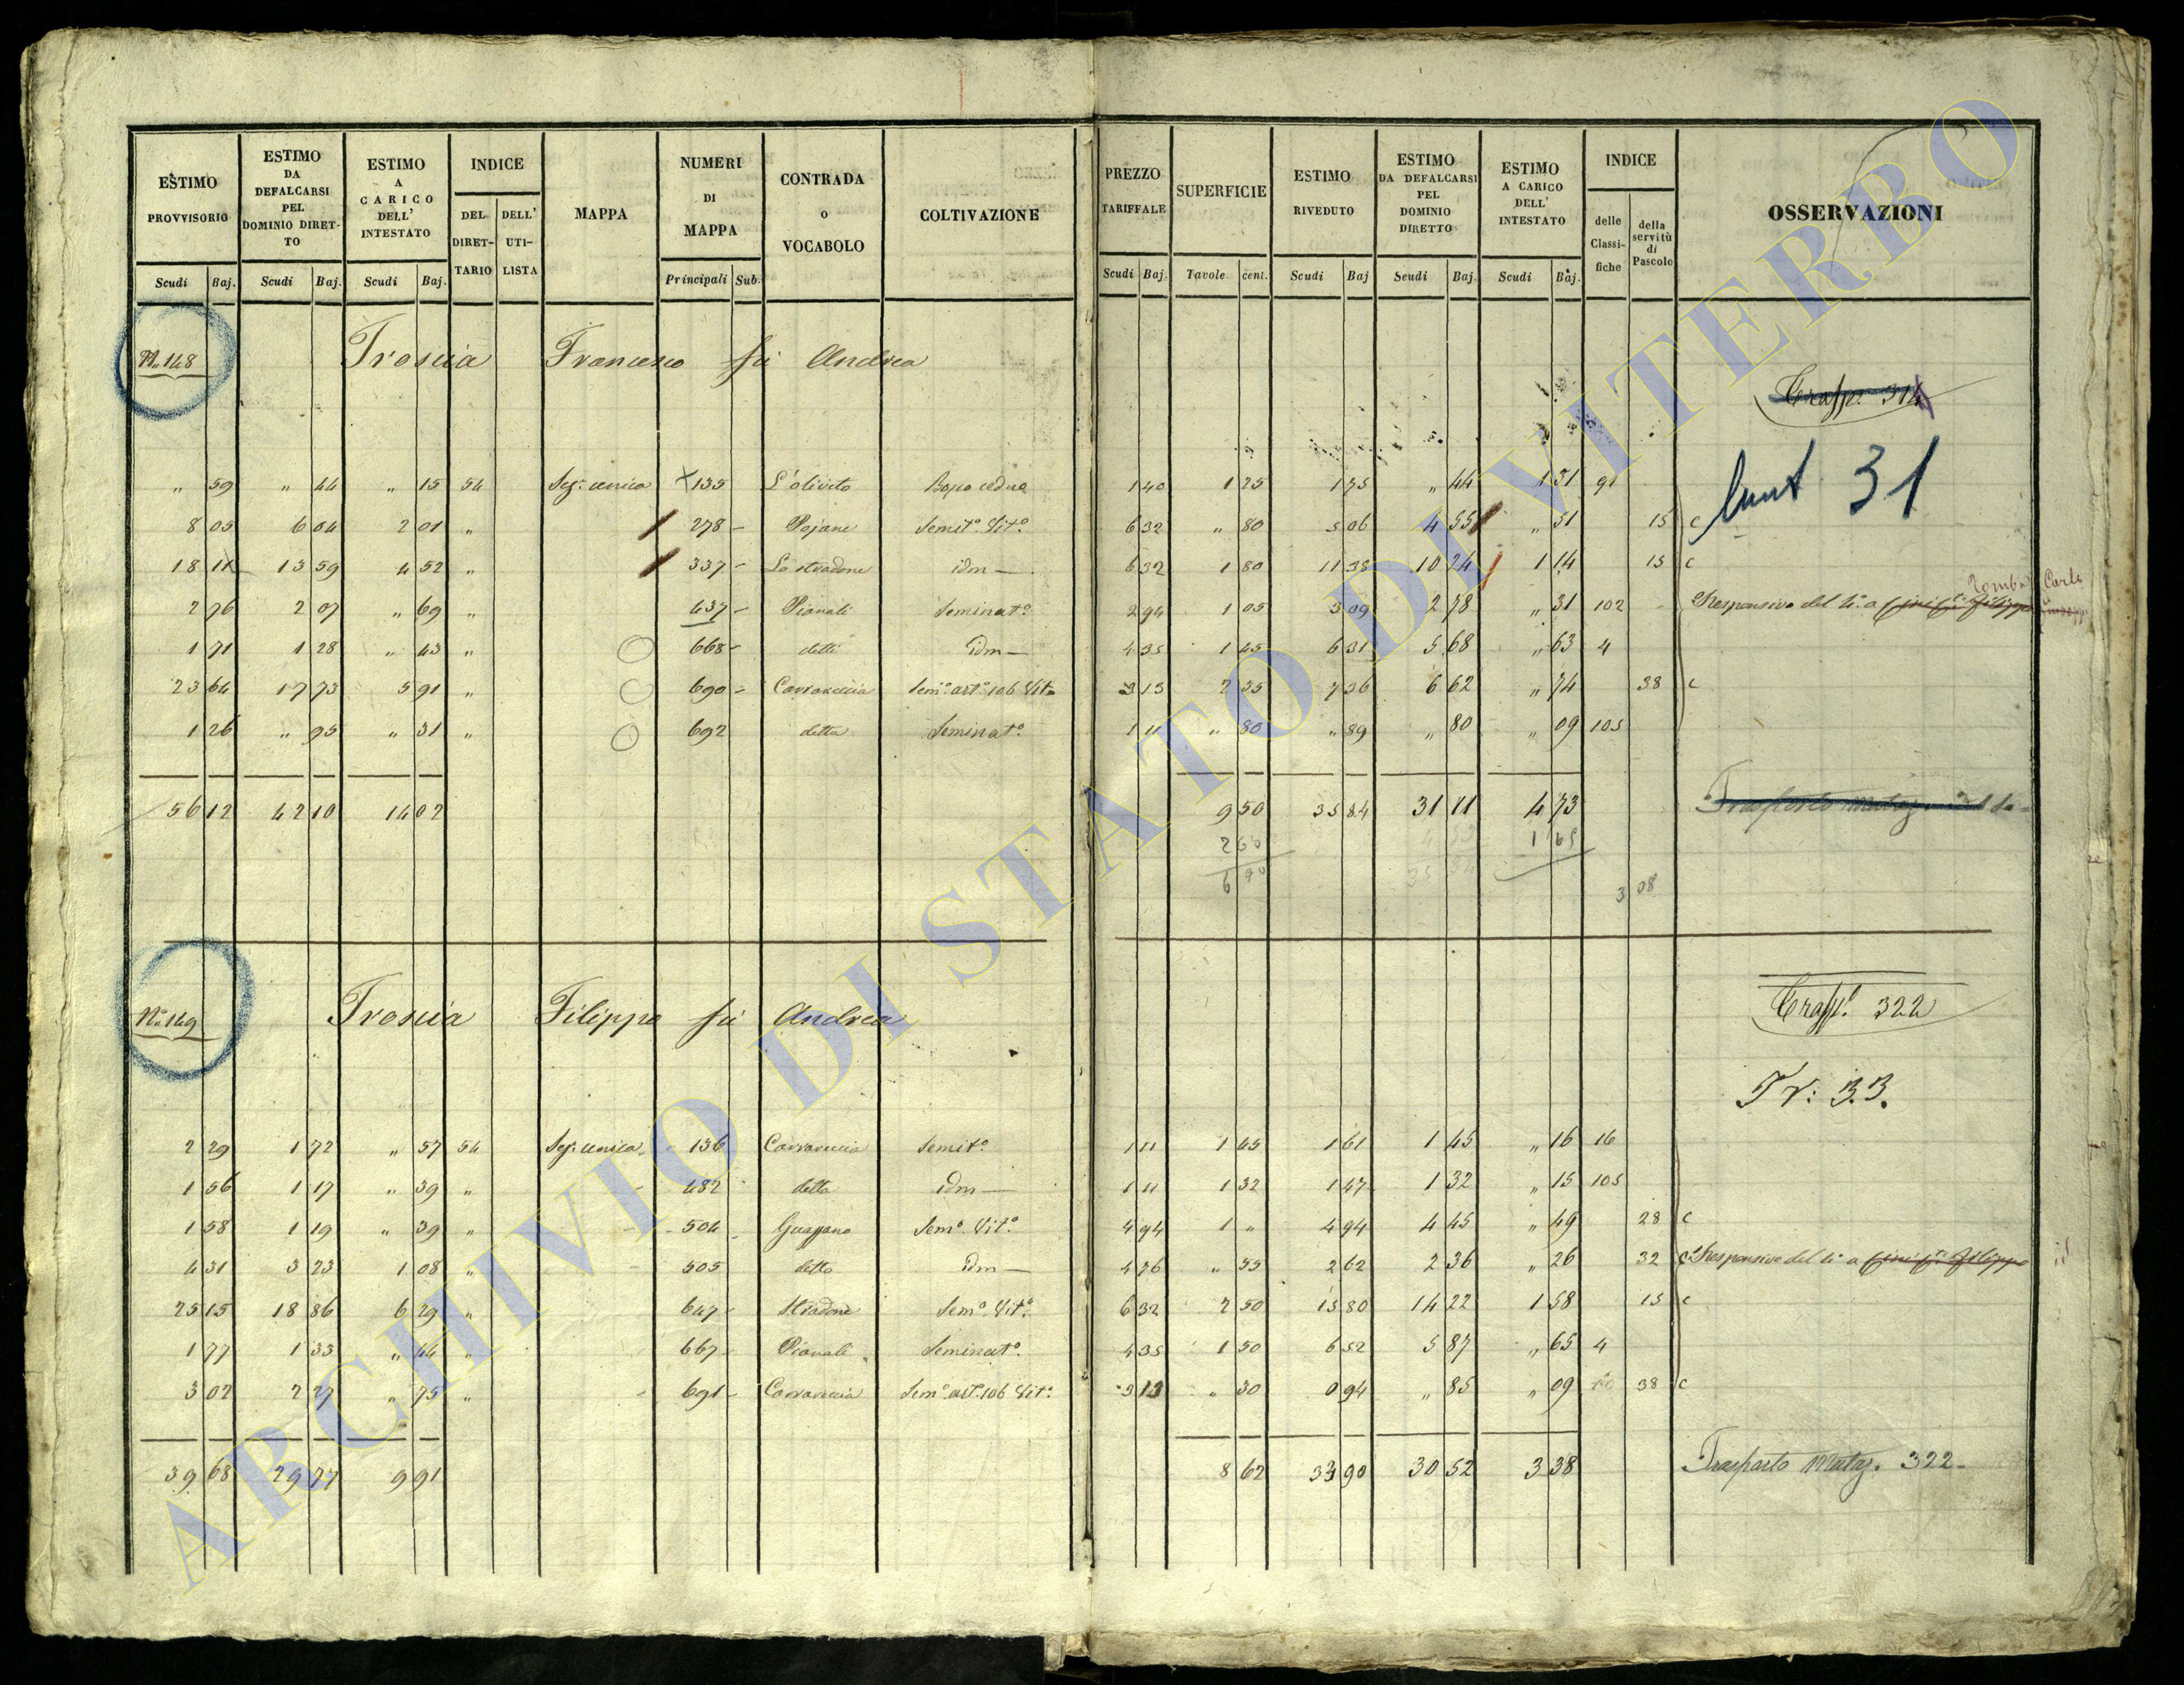 ESTIMO PROVVISORIO | ESTIMO DA DEFALCARSI PEL DOMINIO DIRETTO | ESTIMO A CARICO DELL' INTESTATO | INDICE | MAPPA | NUMERI DI MAPPA | CONTRADA o VOCABOLO | COLTIVAZIONE | PREZZO TARIFFALE | SUPERFICIE | ESTIMO RIVEDUTO | ESTIMO DA DEFALCARSI PEL DOMINIO DIRETTO | ESTIMO A CARICO DELL' INTESTATO | INDICE | OSSERVAZIONI
DEL DIRET-TARIO | DELL' UTI-LISTA | delle Classi-fiche | della servitù di Pascolo
Scudi | Baj. | Scudi | Baj. | Scudi | Baj. | Principali | Sub. | Scudi | Baj. | Tavole | cent. | Scudi | Baj | Scudi | Baj. | Scudi | Baj.
N. 148 Troscia Francesco fu Andrea
Trasp. 314
31
" 59 | " 44 | " 15 | 54 | Sez. unica | 135 | L'oliveto | Bosco ceduo | 1 40 | 1 25 | 1 75 | " 44 | 1 31 | 91
8 05 | 6 04 | 2 01 | " | 278 | Pojane | Semito. Vito. | 6 32 | " 80 | 5 06 | 4 55 | " 51 | 15 | c
18 11 | 13 59 | 4 52 | " | 337 | Lo stradone | idm | 6 32 | 1 80 | 11 38 | 10 24 | 1 14 | 15 | c
2 76 | 2 07 | " 69 | " | 437 | Pianali | Seminato. | 2 94 | 1 05 | 3 09 | 2 78 | " 31 | 102 | Responsivo del 4.° a Filippo Carlo
1 71 | 1 28 | " 43 | " | 668 | detti | idm | 4 35 | 1 45 | 6 31 | 5 68 | " 63 | 4
23 64 | 17 73 | 5 91 | " | 690 | Carraruccia | Semo. arto. 106 Vito | 3 13 | 2 35 | 7 36 | 6 62 | " 74 | 38 | c
1 26 | " 95 | " 31 | " | 692 | detta | Seminato. | 1 11 | " 80 | " 89 | " 80 | " 09 | 105
56 12 | 42 10 | 14 02 | 9 50 | 35 84 | 31 11 | 4 73
2 60 | 1 65
6 90
3 08
N.° 149 Troscia Filippo fu Andrea
Trasp.t 322
Tr: 33.
2 29 | 1 72 | " 57 | 54 | Sez. unica | 136 | Carraruccia | Semito. | 1 11 | 1 45 | 1 61 | 1 45 | " 16 | 16
1 56 | 1 17 | " 39 | " | 482 | detta | idm | 1 11 | 1 32 | 1 47 | 1 32 | " 15 | 105
1 58 | 1 19 | " 39 | " | 504 | Semo. Vito. | 4 94 | 1 " | 4 94 | 4 45 | " 49 | 28 | c
4 31 | 3 23 | 1 08 | " | 505 | detto | idm | 4 76 | " 55 | 2 62 | 2 36 | " 26 | 32 | c Responsivo del 4.° a Filippo
25 15 | 18 86 | 6 29 | " | 647 | Stradone | Semo. Vito. | 6 32 | 2 50 | 15 80 | 14 22 | 1 58 | 15 | c
1 77 | 1 33 | " 44 | " | 667 | Pianali | Seminato. | 4 35 | 1 50 | 6 52 | 5 87 | " 65 | 4
3 02 | 2 27 | " 75 | " | 691 | Carraruccia | Semo. arto. 106 Vito. | 3 13 | " 30 | 0 94 | " 85 | " 09 | 38 | c
39 68 | 29 77 | 9 91 | 8 62 | 33 90 | 30 52 | 3 38 | Trasporto Mataz. 322
ARCHIVIO DI STATO DI VITERBO